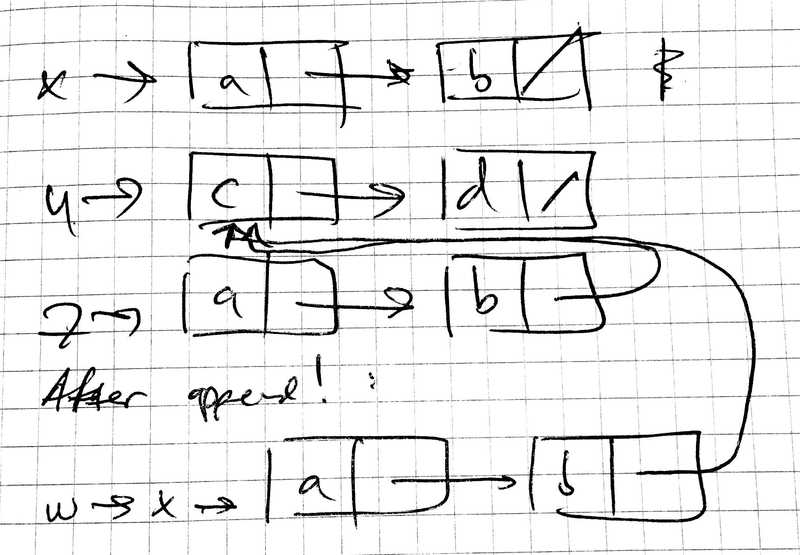 x → a → b
y → c → d
z → a → b
After append! :
w → x → a → b